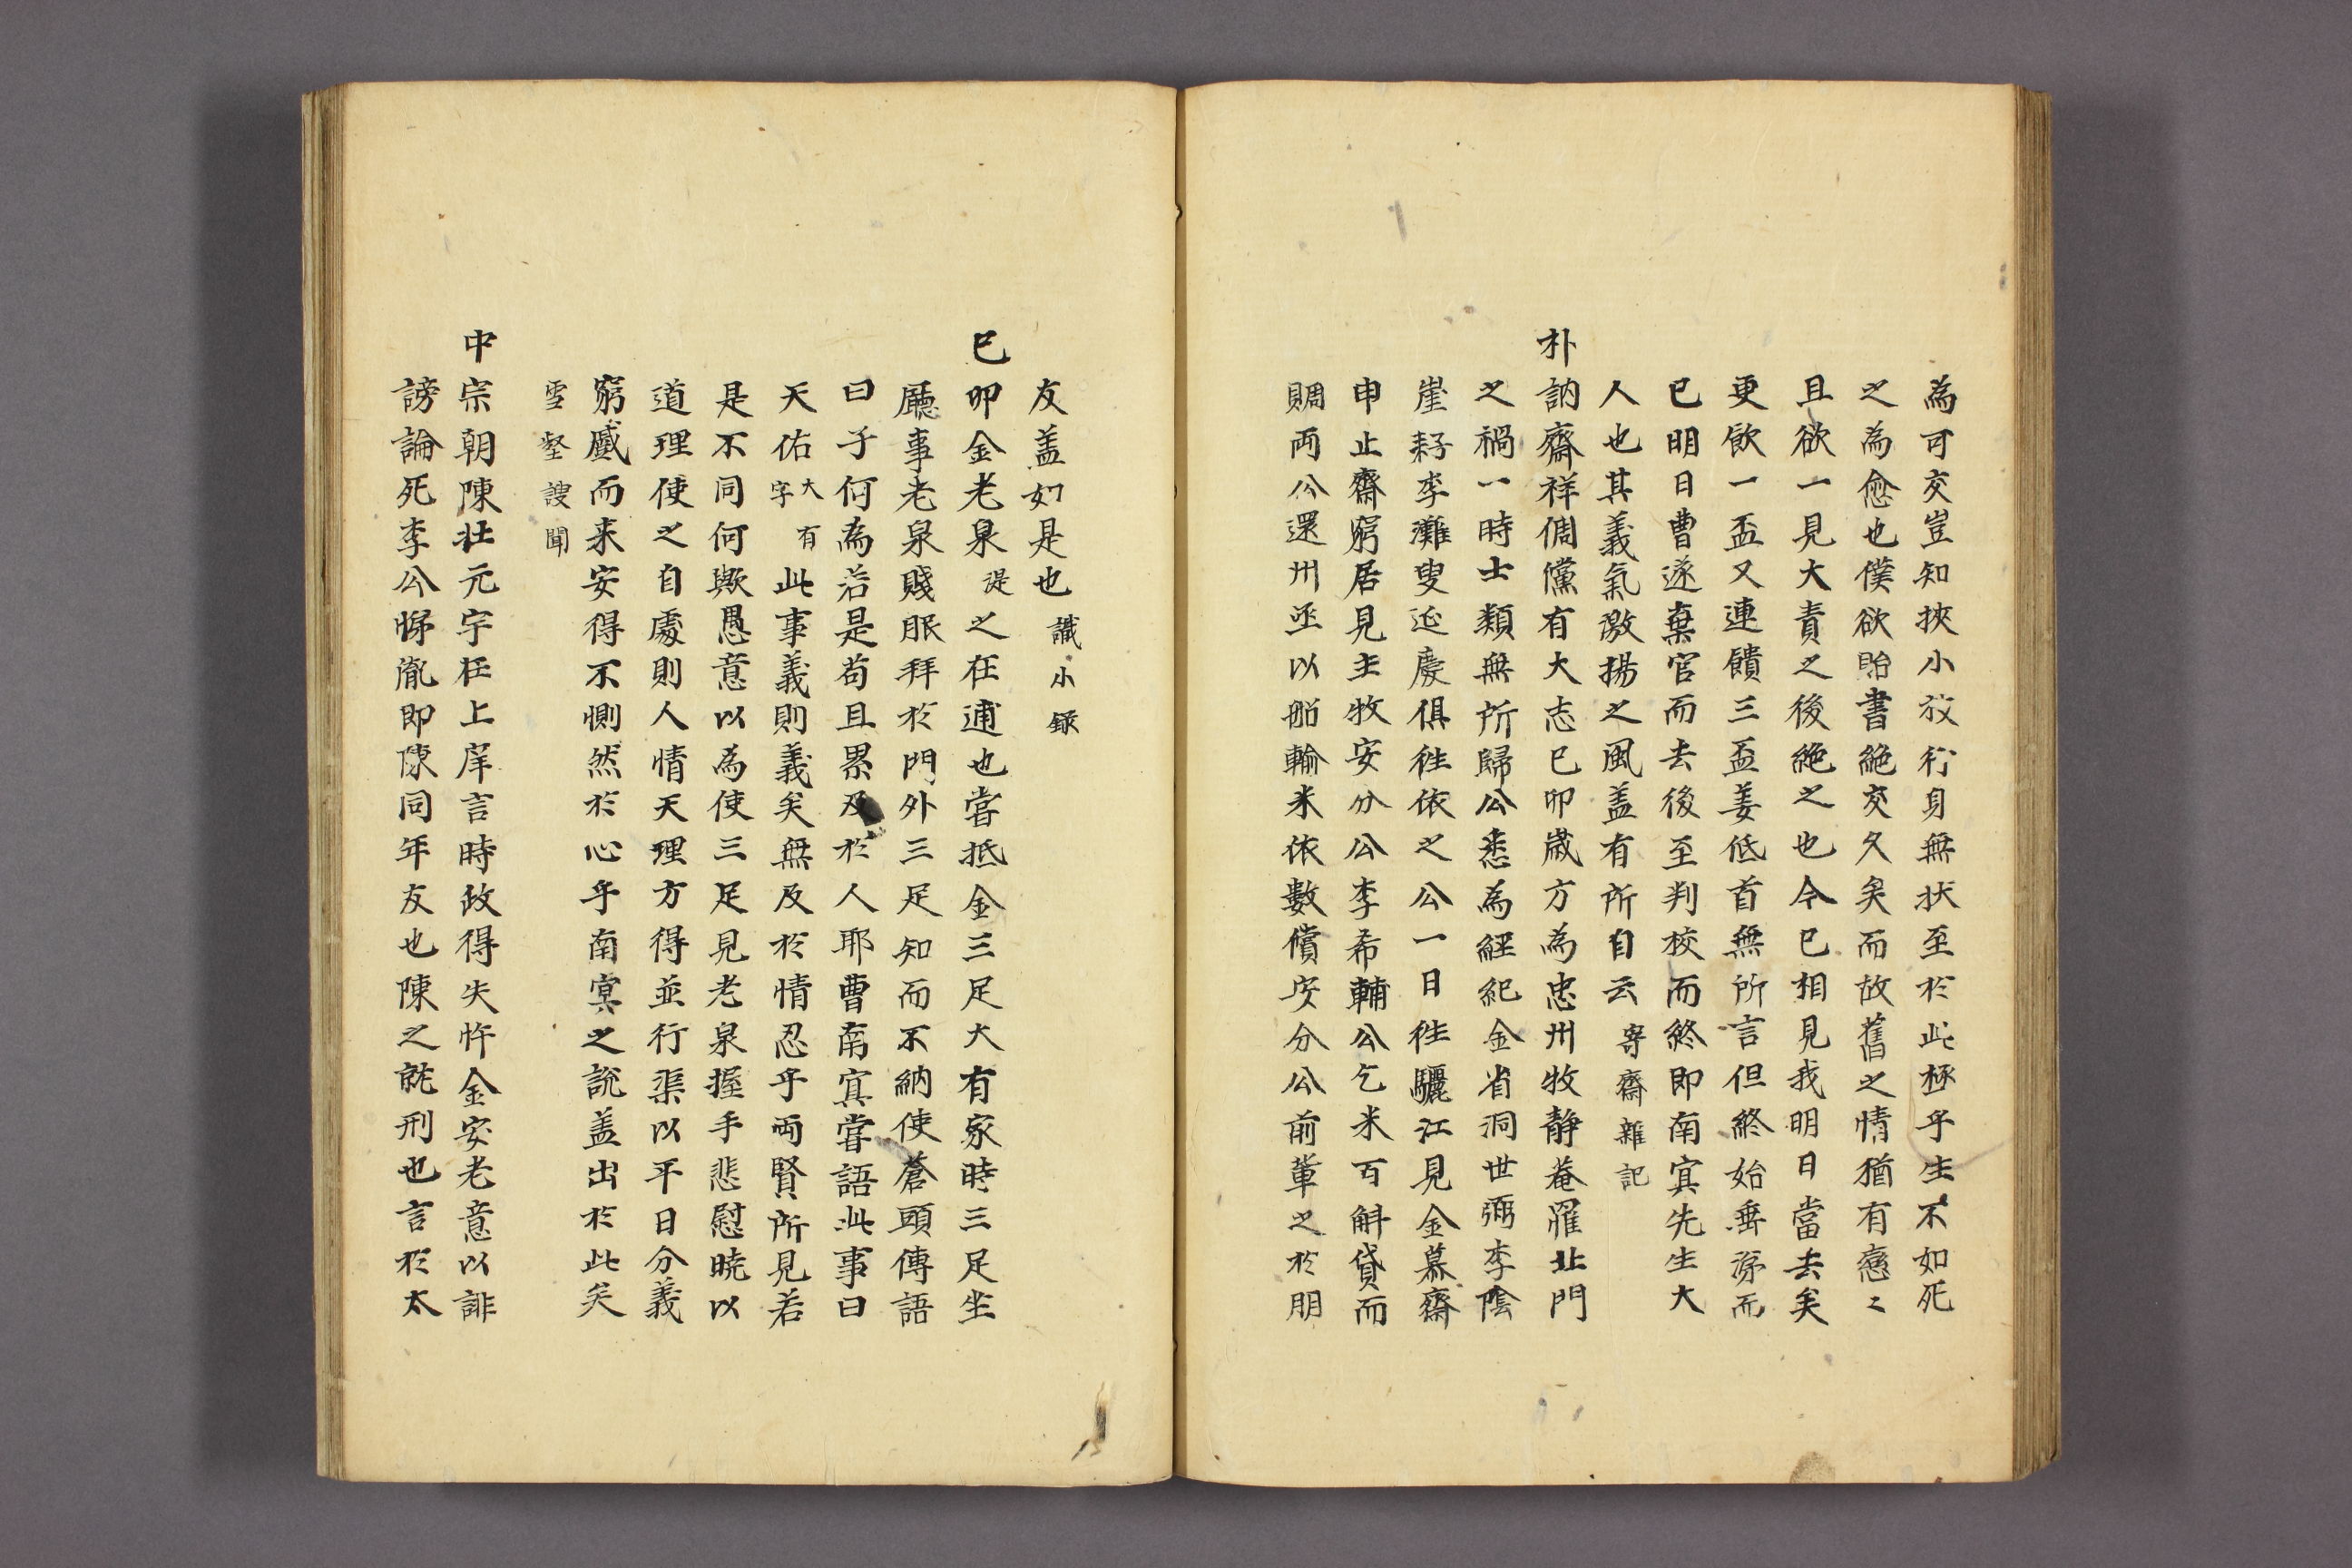 為可交豈知挾小放行身無状至於此極乎生不如死
之為愈也僕欲貽書絶交久矣而故舊之情猶有戀〻
且欲一見大責之後絶之也今已相見我明日當去矣
更飲一盃又連饋三盃姜低首無所言但終始垂涕而
已明日曹遂棄官而去後至判校而終即南㝠先生大
人也其義氣激揚之風盖有所自云寄齋雜記
朴訥齋祥倜儻有大志已卯歳方為忠州牧静菴罹北門
之禍一時士類無所歸公悉為經紀金省洞世弼李陰
崖耔李灘叟延慶俱徃依之公一日徃驪江見金慕齋
申止齋窮居見主牧安分公李希輔公乞米百斛貸而
賙両公還州亟以船輸米依數償安分公前軰之於朋
友盖如是也識小録
已卯金老泉湜之在逋也嘗抵金三足大有家時三足坐
廳事老泉賤服拜於門外三足知而不納使蒼頭傳語
曰子何為若是苟且累及於人耶曹南㝠嘗語此事曰
天佑大有字此事義則義矣無及於情忍乎両賢所見若
是不同何歟愚意以為使三足見老泉握手悲慰曉以
道理使之自處則人情天理方得並行渠以平日分義
窮蹙而来安得不惻然於心乎南㝠之說盖出於此矣
雪壑謏聞
中宗朝陳壮元宇在上庠言時政得失忤金安老意以誹
謗論死李公悌胤即陳同年友也陳之就刑也言於太